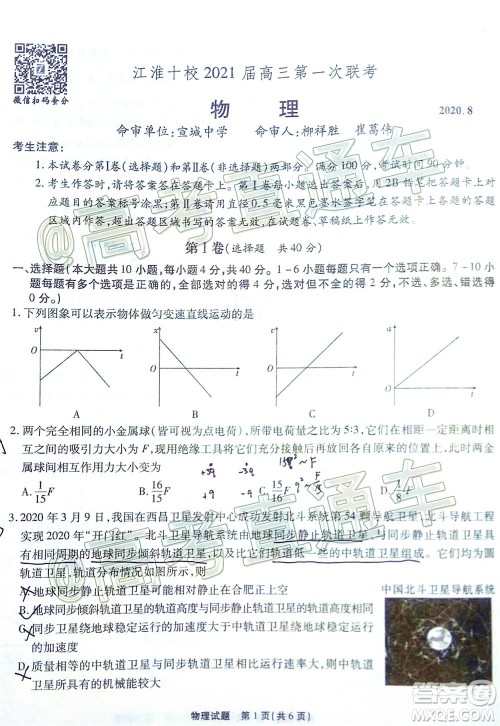 微信扫码查分
江淮十校 2021 届高三第一次联考
物 理
2020.8
命审单位:宣城中学 命审人:柳祥胜 崔葛伟
考生注意:
1. 本试卷分第Ⅰ卷(选择题)和第Ⅱ卷(非选择题)两部分。满分100分,考试时间90分钟。
2. 考生作答时,请将答案答在答题卡上。选择题每小题选出答案后,用2B铅笔把答题卡上对应题目的答案标号涂黑;第Ⅱ卷请用直径0.5毫米的黑色墨水签字笔在答题卡上各题的答题区域内作答,超出答题区域书写的答案无效,在试题卷、草稿纸上作答无效。
第Ⅰ卷(选择题 共40分)
一、选择题(本大题共10小题,每小题4分,共40分。1-6小题只有一个选项正确。7-10小题有多个选项正确,全部选对的得4分,选对但不全的得2分,不选、错选、漏选的得0分)
1. 下列图象可以表示物体做匀变速直线运动的是
v x v a
O t O t O t O t
A B C D
2. 两个完全相同的小金属球(皆可视为点电荷),所带电荷量之比为5:3,它们在相距一定距离时相互之间的吸引力大小为F,现用绝缘工具将它们充分接触后再放回各自原来的位置上,此时两金属球间相互作用力大小变为
A. 1/15 F B. 16/15 F C. 1/16 F D. 1/8 F
+q +q
3. 2020年3月9日,我国在西昌卫星发射中心成功发射北斗系统第54颗导航卫星,北斗导航工程实现2020年“开门红”。北斗导航系统的卫星由地球同步静止轨道卫星、与地球同步静止轨道卫星具有相同周期的地球同步倾斜轨道卫星,以及比它们轨道低一些的中轨道卫星组成。它们均为圆轨道卫星,轨道分布情况如图所示,则
A. 地球同步静止轨道卫星可能相对静止在合肥正上空
B. 地球同步倾斜轨道卫星的高度与同步静止轨道卫星的轨道高度相同
C. 同步卫星绕地球稳定运行的加速度大于中轨道卫星绕地球稳定运行的加速度
D. 质量相等的中轨道卫星与同步轨道卫星相比,中轨道卫星所具有的机械能较大
中国北斗卫星导航系统
物理试题 第1页(共6页)
高考直通车
高考直通车
高考直通车
答案圈
MXQE.COM